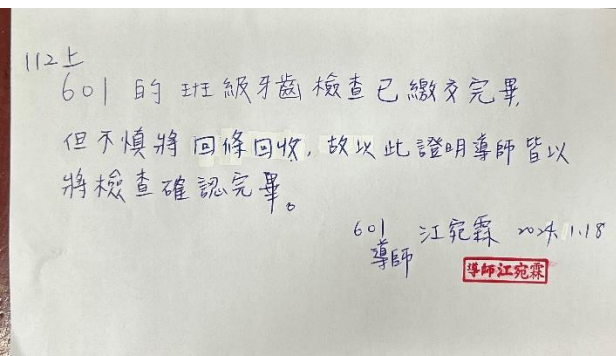 112上
601 的 班級牙齒檢查已繳交完畢,
但不慎將 回條回收, 故以此證明導師皆以
將檢查確認完畢。
601 江宛霖 2024.1.18
導師
導師江宛霖